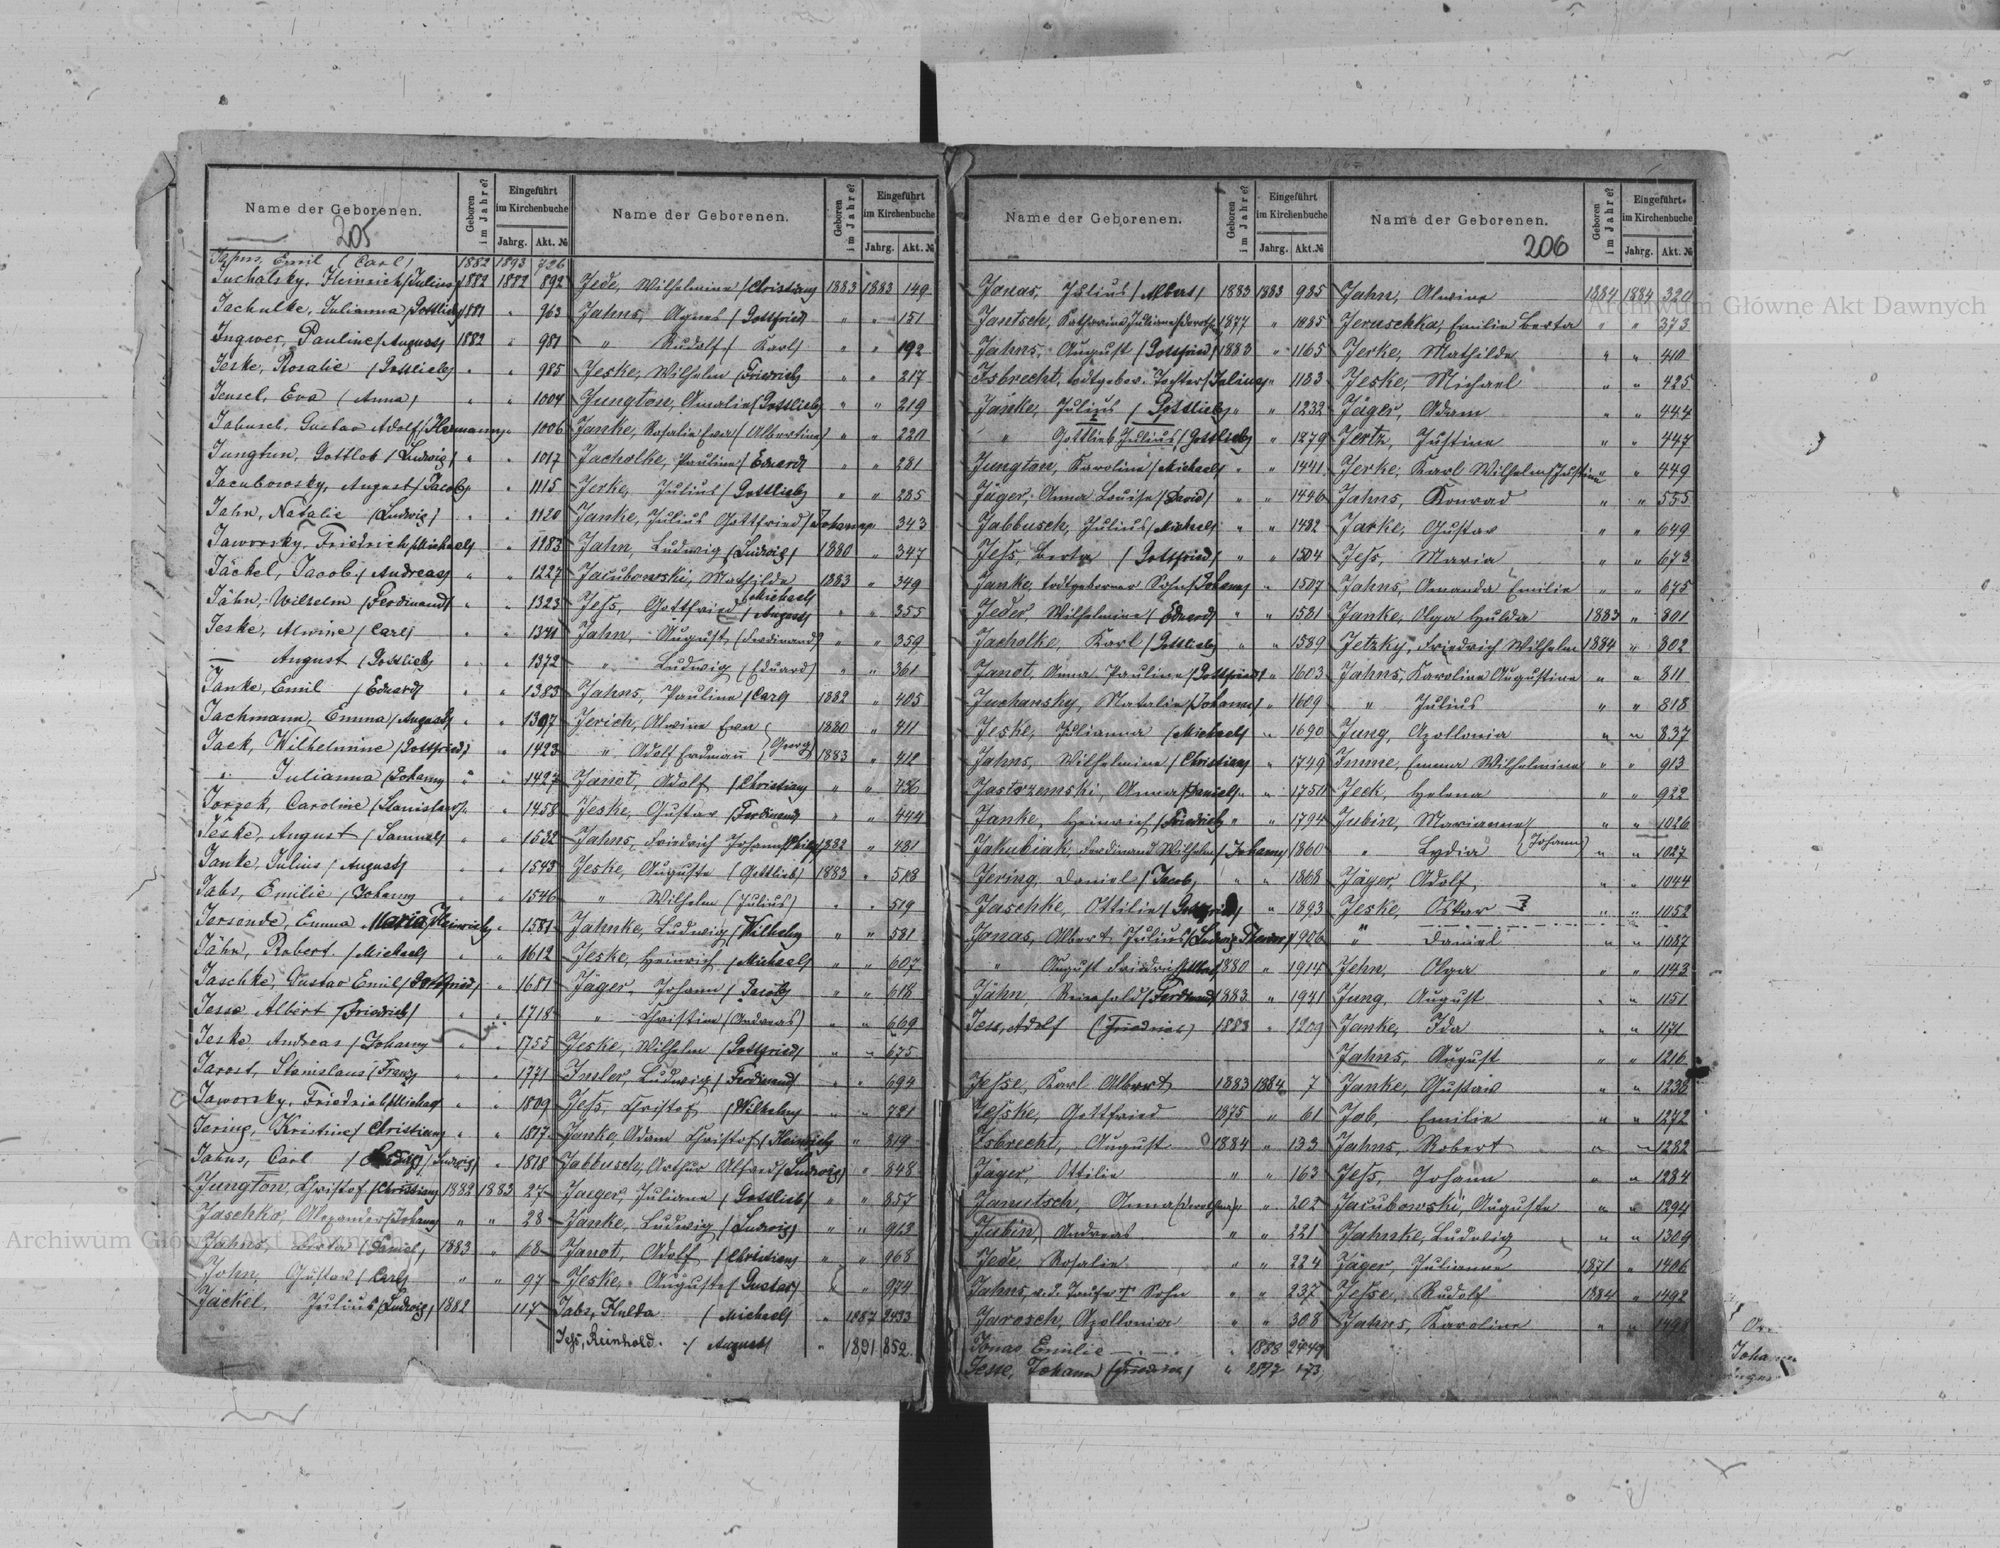 Name der Geborenen. Geboren im Jahre? Eingeführt im Kirchenbuche Jahrg. Akt. №
205
Jahns, Emil (Carl) 1882 1893 726
Juchalsky, Heinrich (Julius) 1882 1882 892
Jachulke, Julianna (Gottlieb) 1881 " 963
Ingwer, Pauline (August) 1882 " 981
Jeske, Rosalie (Gottlieb) " " 985
Jensel, Eva (Anna) " " 1004
Jabusch, Gustav Adolf (Hermann) " " 1006
Jungton, Gottlob (Ludwig) " " 1017
Jacubowsky, August (Jacob) " 1115
Jahn, Natalie (Ludwig) " " 1120
Jaworsky, Friedrich (Michael) " 1183
Jäckel, Jacob (Andreas) " " 1227
Jähn, Wilhelm (Ferdinand) " " 1323
Jeske, Alwine (Carl) " " 1341
— August (Gottlieb) " " 1372
Janke, Emil (Eduard) " " 1383
Jachmann, Emma (August) " " 1397
Jack, Wilhelmine (Gottfried) " 1423
" Julianna (Johann) " " 1427
Jorzek, Caroline (Stanislaus) " " 1458
Jeske, August (Samuel) " " 1532
Janke, Julius (August) " " 1543
Jabs, Emilie (Johann) " " 1546
Jersende, Emma Maria (Heinrich) " 1581
Jähn, Robert (Michael) " " 1612
Jaschke, Gustav Emil (Gottfried) " 1681
Jesse Albert (Friedrich) " " 1718
Jeske Andreas (Johann) " " 1755
Jarost, Stanislaus (Franz) " " 1771
Jaworsky, Friedrich (Michael) " " 1809
Jering, Kristine (Christian) " " 1817
Jahns, Carl (Ludwig) " 1818
Jungton, Christof (Christian) 1882 1883 27
Jaschke, Alexander (Johann) " " 28
Jahns, Berta (Daniel) 1883 " 68
John, Gustav (Carl) " " 97
Jäckel, Julius (Ludwig) 1882 117
Name der Geborenen. Geboren im Jahre? Eingeführt im Kirchenbuche Jahrg. Akt. №
Jede, Wilhelmine (Christian) 1883 1883 149
Jahns, Agnes (Gottfried) " " 151
" Rudolf (Karl) " " 192
Jeske, Wilhelm (Friedrich) " " 217
Jungton, Amalie (Gottlieb) " " 219
Janke, Rosalie Ewa (Albertine) " " 220
Jacholke, Pauline (Eduard) " " 281
Jerke, Julius (Gottlieb) " " 285
Janke, Julius Gottfried (Johann) " 343
Jahn, Ludwig (Ludwig) 1880 " 347
Jacubowski, Mathilde (Michael) 1883 " 349
Jess, Gottfried (August) " " 355
Jahn, August (Ferdinand) " " 359
" Ludwig (Eduard) " " 361
Jahns, Pauline (Carl) 1882 " 405
Jerich, Alwine Ewa 1880 " 411
" Adolf Erdmann (Georg) 1883 " 412
Janot, Adolf (Christian) " " 436
Jeske, Gustav (Ferdinand) " " 444
Jahns, Friedrich Johann 1882 " 481
Jeske, Auguste (Gottlieb) 1883 " 518
" Wilhelm (Julius) " " 519
Jahnke, Ludwig (Wilhelm) " " 581
Jeske, Heinrich (Michael) " " 607
Jäger, Johann (Jacob) " " 618
" Christine (Andreas) " " 669
Jeske, Wilhelm (Gottfried) " " 675
Insler, Ludwig (Ferdinand) " " 694
Jess, Christof (Wilhelm) " " 721
Janke, Adam Christof (Heinrich) " 819
Jabbusch, Arthur Alfred (Ludwig) " 848
Jaeger, Juliane (Gottlieb) " " 857
Janke, Ludwig (Ludwig) " " 913
Janot, Adolf (Christian) " " 968
Jeske, Auguste (Gustav) " " 974
Jabs, Hulda (Michael) " 1887 2433
Jess, Reinhold (August) " 1891 852
Name der Geborenen. Geboren im Jahre? Eingeführt im Kirchenbuche Jahrg. Akt. №
Janas, Julius (Albert) 1883 1883 985
Jantsch, Katharina Juliane 1877 " 1185
Jahns, August (Gottfried) 1883 " 1165
Isbrecht, todtgebor. Tochter (Julius) " 1183
Janke, Julius (Gottlieb) " " 1232
" Gottlieb Julius (Gottlieb) " 1279
Jungton, Karoline (Michael) " " 1441
Jäger, Anna Louise (David) " " 1446
Jabbusch, Julius (Michael) " " 1482
Jess, Berta (Gottfried) " " 1504
Janke, todtgeborner Sohn (Johann) " 1507
Jeder, Wilhelmine (Eduard) " " 1581
Jacholke, Karl (Gottlieb) " " 1589
Janot, Anna Pauline (Gottfried) " 1603
Juchansky, Natalie (Johann) " 1609
Jeske, Julianna (Michael) " 1690
Jahns, Wilhelmine (Christian) " 1749
Jastrzemski, Anna (Daniel) " " 1750
Janke, Heinrich (Friedrich) " " 1794
Jakubiak, Ferdinand Wilhelm (Johann) 1860
Jering, Daniel (Jacob) " " 1868
Jaschke, Ottilie (Gottfried) " 1893
Jonas, Albert Julius (Ludwig Theodor) 1906
" August Friedrich 1880 " 1914
Jähn, Reinhold (Ferdinand) 1883 " 1941
Jess, Adolf (Friedrich) 1883 " 1209
Jesse, Karl Albert 1883 1884 7
Jeske, Gottfried 1875 " 61
Isbrecht, August 1884 " 133
Jäger, Ottilie " " 163
Janutsch, Anna " " 202
Jubin, Andreas " " 221
Jede, Rosalie " " 224
Jahns, v. d. Taufe † Sohn " " 237
Jarosch, Apollonia " " 308
Jonas Emilie " 1888 2449
Jesse, Johann (Friedrich) " 1897 173
Name der Geborenen. Geboren im Jahre? Eingeführt im Kirchenbuche Jahrg. Akt. №
206
Jahn, Alwine 1884 1884 320
Jeruschka, Emilie Berta " " 373
Jerke, Mathilde " " 410
Jeske, Michael " " 425
Jäger, Adam " " 444
Jertz, Justine " " 447
Jerke, Karl Wilhelm (Justine) " " 449
Jahns, Konrad " " 555
Janke, Gustav " " 649
Jess, Maria " " 673
Jahns, Amanda Emilie " " 675
Janke, Olga Hulda 1883 " 801
Jetzky, Friedrich Wilhelm 1884 " 802
Jahns, Karoline Augustine " " 811
" Julius " " 818
Jung, Apollonia " " 837
Imme, Emma Wilhelmine " " 913
Jeck, Helena " " 922
Jubin, Marianne " " 1026
" Lydia (Johann) " " 1027
Jäger, Adolf " " 1044
Jeske, Oskar " " 1052
" Daniel " " 1087
Jehn, Olga " " 1143
Jung, August " " 1151
Janke, Ida " " 1171
Jahns, August " " 1216
Janke, Gustaw " " 1238
Job, Emilie " " 1272
Jahns, Robert " " 1282
Jess, Johann " " 1284
Jacubowski, Auguste " " 1294
Jahnke, Ludwig " " 1309
Jäger, Julianne 1871 " 1406
Jesse, Rudolf 1884 " 1492
Jahns, Karoline " " 1498
Johann
Archiwum Główne Akt Dawnych
Archiwum Główne Akt Dawnych